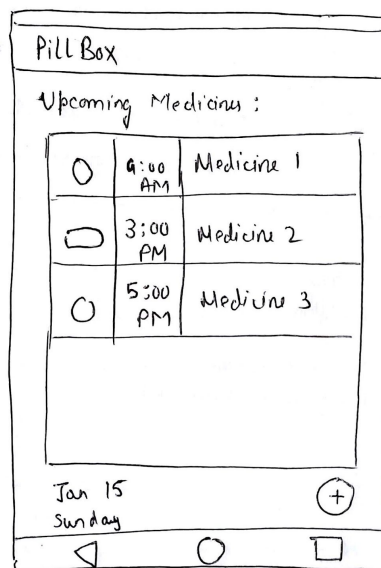 Pill Box
Upcoming Medicines :
9:00 AM Medicine 1
3:00 PM Medicine 2
5:00 PM Medicine 3
Jan 15
Sunday
+